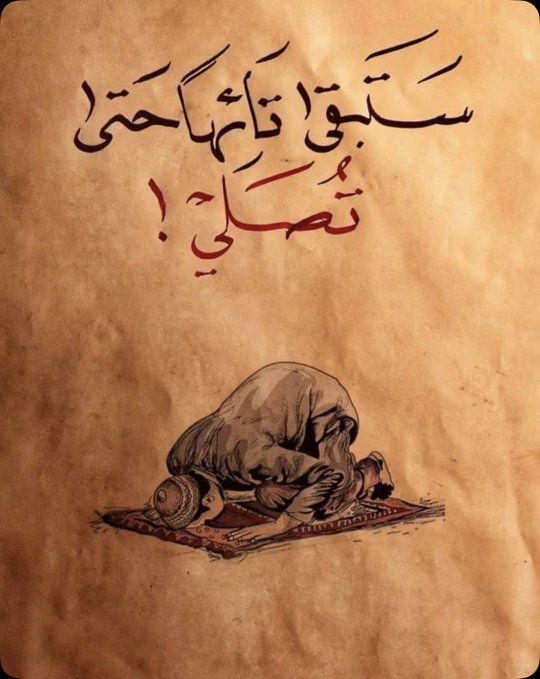 سَتَبقىٰ تَائِهاً حَتىٰ
تُصَلِيْ !